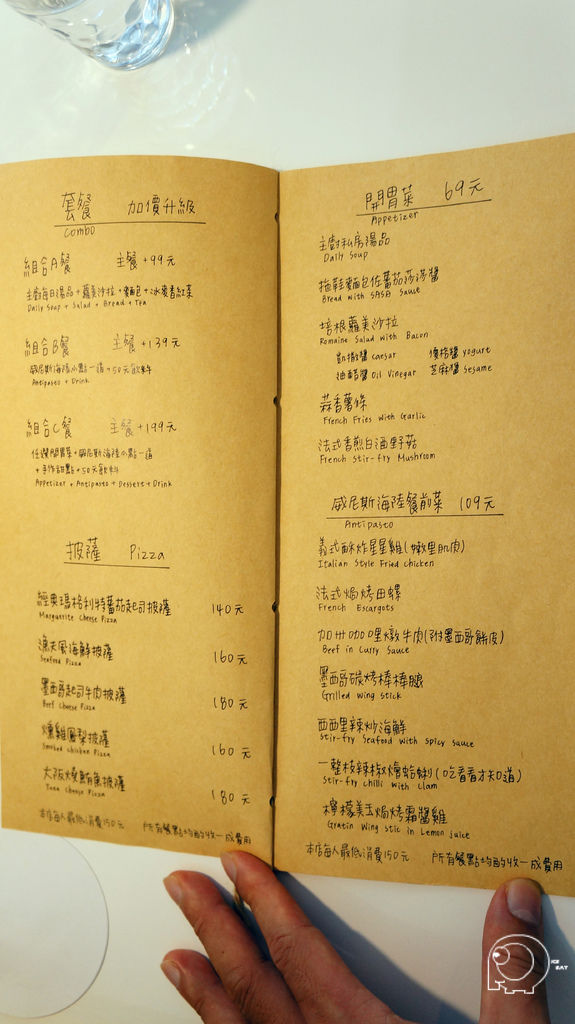 套餐 加價升級
Combo
組合A餐 主餐+99元
主廚每日湯品+蘿美沙拉+麵包+冰麥香紅茶
Daily Soup + Salad + Bread + Tea
組合B餐 主餐+139元
威尼斯海陸小點一道+50元飲料
Antipasto + Drink
組合C餐 主餐+199元
任選開胃菜+威尼斯海陸小點一道
+手作甜點+50元飲料
Appetizer + Antipasto + Dessert + Drink
披薩 Pizza
經典瑪格利特蕃茄起司披薩 140元
Marguerite Cheese Pizza
漁夫風海鮮披薩 160元
Seafood Pizza
墨西哥起司牛肉披薩 180元
Beef Cheese Pizza
燻雞鳳梨披薩 160元
Smoked Chicken Pizza
大阪燒鮪魚披薩 180元
Tuna Cheese Pizza
本店每人最低消費150元 所有餐點均酌收一成費用
開胃菜 69元
Appetizer
主廚私房湯品
Daily Soup
拖鞋麵包佐蕃茄莎莎醬
Bread with SASA Sauce
培根蘿美沙拉
Romaine Salad with Bacon
凱撒醬 Caesar 優格醬 Yogurt
油醋醬 Oil Vinegar 芝麻醬 Sesame
蒜香薯條
French Fries with Garlic
法式香煎白酒野菇
French Stir-fry Mushroom
威尼斯海陸餐前菜 109元
Antipasto
義式酥炸星星雞(嫩里肌肉)
Italian Style Fried Chicken
法式焗烤田螺
French Escargots
加州咖哩燉牛肉(附墨西哥餅皮)
Beef in Curry Sauce
墨西哥碳烤棒棒腿
Grilled Wing Stick
西西里辣炒海鮮
Stir-fry Seafood with Spicy Sauce
一整枝辣椒燴蛤蜊(吃看看才知道)
Stir-fry chilli with Clam
檸檬美玉焗烤霜醬雞
Gratin Wing Stic in Lemon Juice
本店每人最低消費150元 所有餐點均酌收一成費用
ICE
EAT